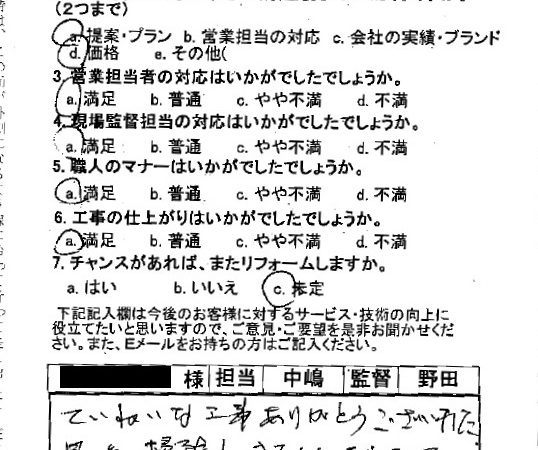 (2つまで)
a. 提案・プラン b. 営業担当の対応 c. 会社の実績・ブランド
d. 価格 e. その他(
3. 営業担当者の対応はいかがでしたでしょうか。
a. 満足 b. 普通 c. やや不満 d. 不満
4. 現場監督担当の対応はいかがでしたでしょうか。
a. 満足 b. 普通 c. やや不満 d. 不満
5. 職人のマナーはいかがでしたでしょうか。
a. 満足 b. 普通 c. やや不満 d. 不満
6. 工事の仕上がりはいかがでしたでしょうか。
a. 満足 b. 普通 c. やや不満 d. 不満
7. チャンスがあれば、またリフォームしますか。
a. はい b. いいえ c. 未定
下記記入欄は今後のお客様に対するサービス・技術の向上に
役立てたいと思いますので、ご意見・ご要望を是非お聞かせくだ
さい。また、Eメールをお持ちの方はご記入ください。
様 担当 中嶋 監督 野田
ていねいな工事ありがとうございました